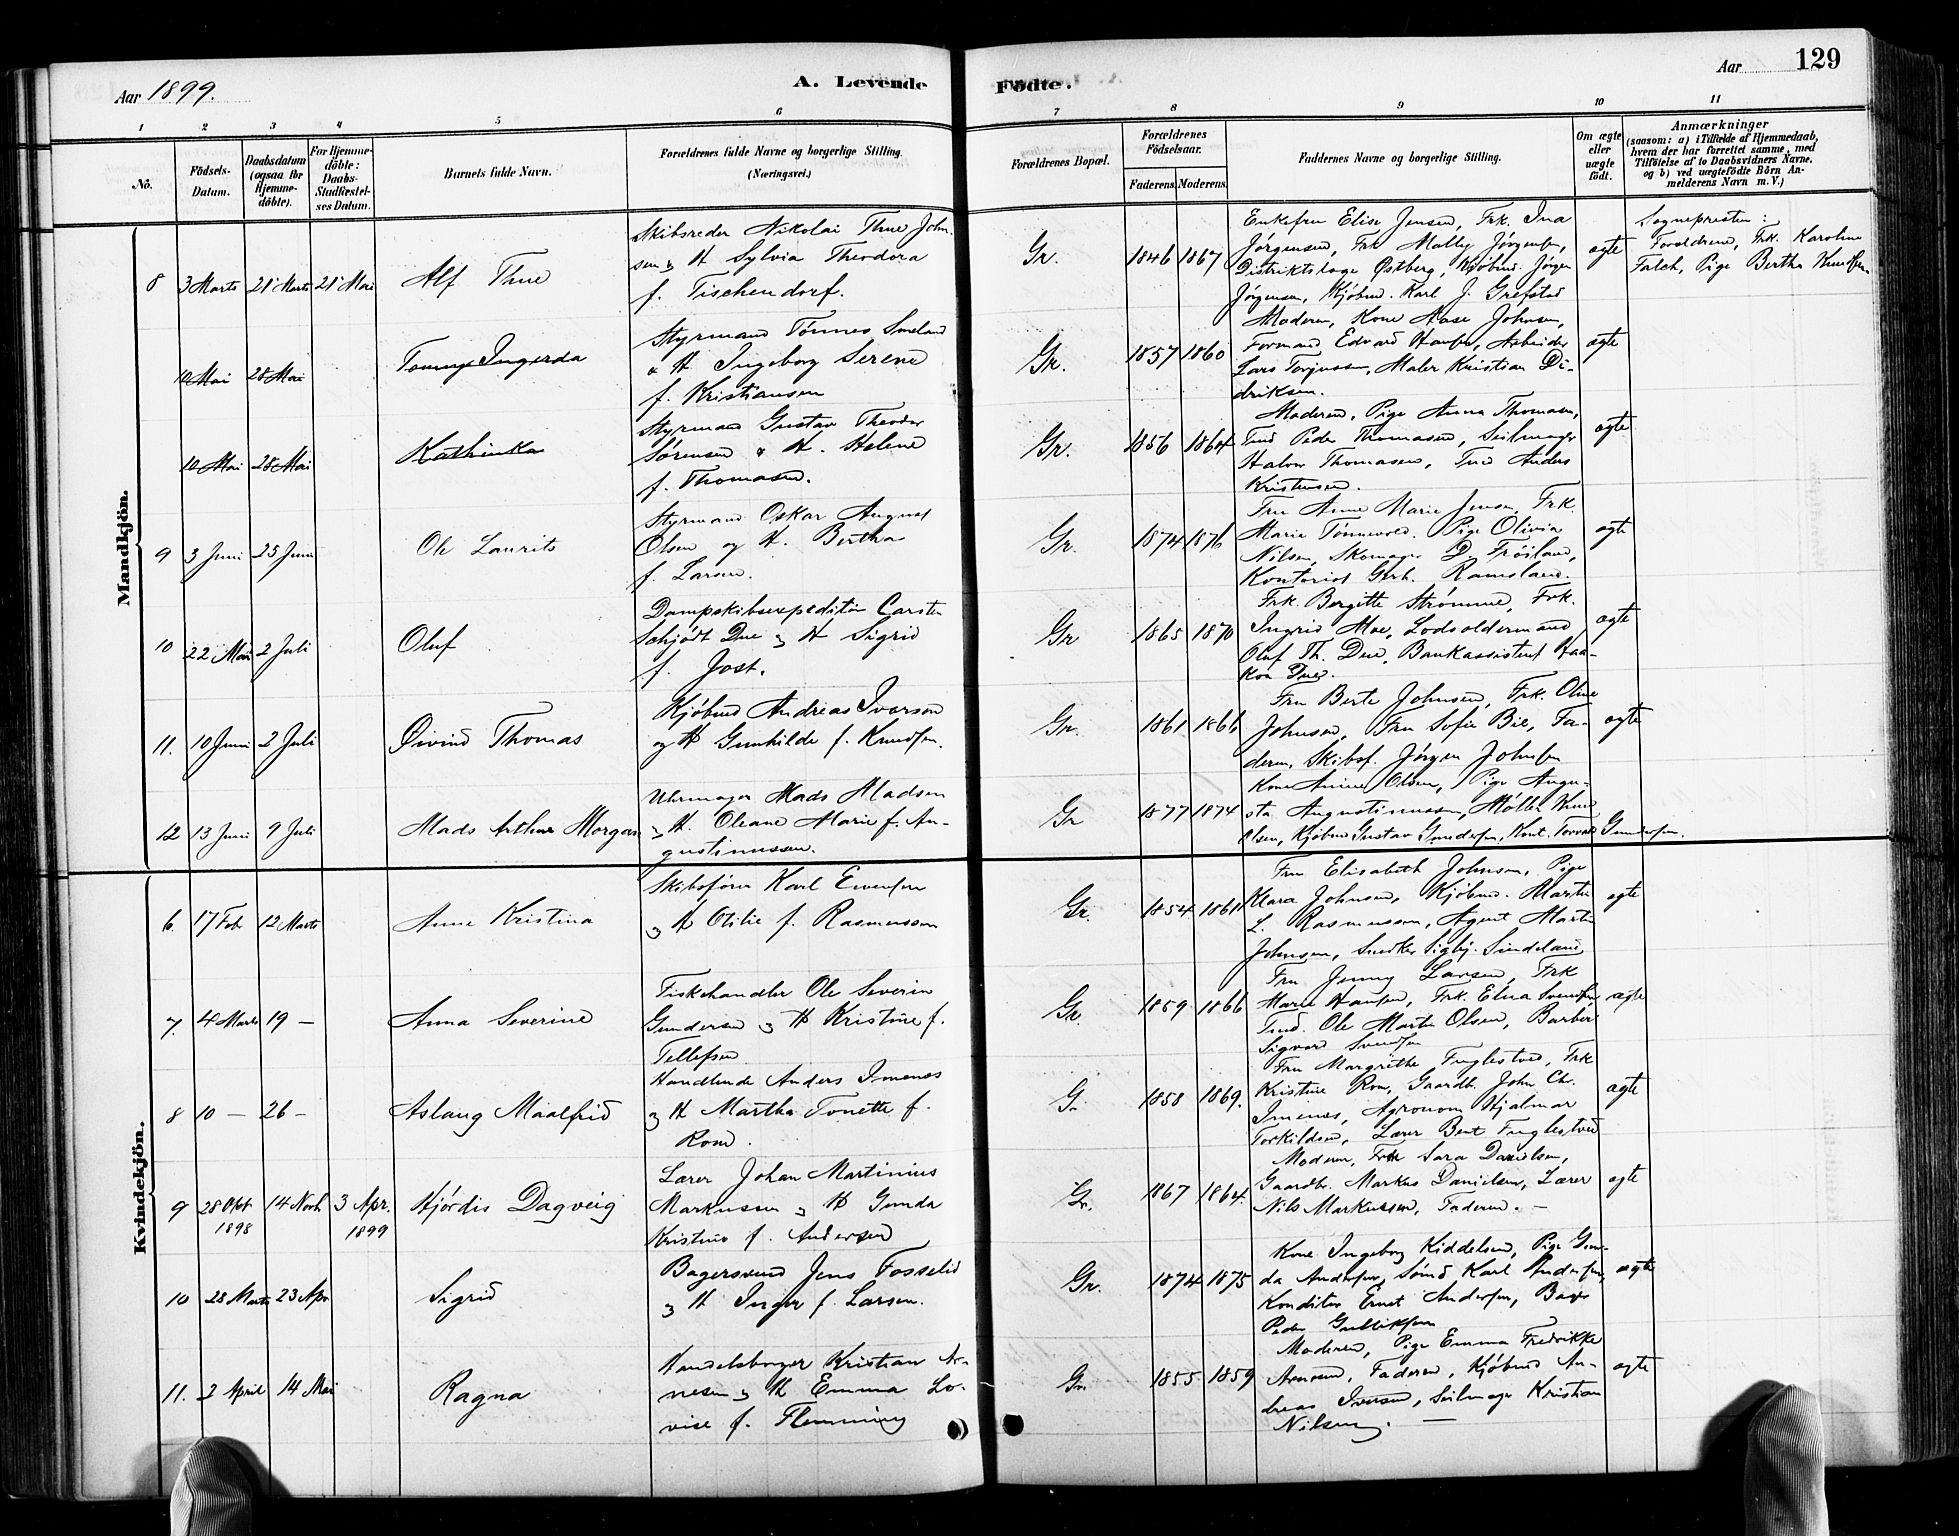 Aar 1899.
A. Levende
Födte.
Aar
129
1 2 3 4 5 6 7 8 9 10 11
No.
Födsels-Datum.
Daabsdatum (ogsaa for Hjemme-döbte).
For Hjemme-döbte: Daabs-Stadfæstel-ses Datum.
Barnets fulde Navn.
Forældrenes fulde Navne og borgerlige Stilling. (Næringsvei.)
Forældrenes Bopæl.
Forældrenes Födselsaar.
Faderens. Moderens.
Faddernes Navne og borgerlige Stilling.
Om ægte eller uægte födt.
Anmærkninger
(saasom: a) i Tilfælde af Hjemmedaab, hvem der har forrettet samme, med Tilföielse af to Daabsvidners Navne. og b) ved uægtefödte Börn An-melderens Navn m. V.)
Mandkjön.
8 3 Marts 21 Marts 21 Mai
Alf Thue
Skibsreder Nikolai Thue John-
sen & H Sylvia Theodora
f. Tischendorf.
Gr. 1846 1867
Enkefru Elise Jensen, Frk. Ina
Jørgensen, Frk Molly Jørgensen,
Distriktslæge Østberg, Kjøbmd. Jørgen
Jørgensen, Kjøbmd. Karl J. Grefstad
ægte
Sognepresten:
Forældrene, Frk. Karoline
Falch, Pige Bertha Knudsen
10 Mai 28 Mai
Tonny Ingerda
Styrmand Tønnes Smeland
& H Ingeborg Serene
f. Kristiansen
Gr. 1857 1860
Moderen, Kone Aase Johnsen,
Formand Edvard Hansen, Arbeider
Lars Torjussen, Maler Kristian Di-
driksen.
ægte
10 Mai 28 Mai
Kathinka
Styrmand Gustav Theodor
Sørensen & H. Helene
f. Thomasen.
Gr. 1856 1864
Moderen, Pige Anna Thomasen,
Tmd Peder Thomasen, Seilmager
Halvor Thomasen, Tmd Anders
Kristensen.
ægte
9 3 Juni 25 Juni
Ole Laurits
Styrmand Oskar August
Olsen og H. Bertha
f. Larsen.
Gr. 1874 1876
Fru Anne Marie Jensen, Frk.
Marie Tønnevold. Pige Olivia
Nilsen, Skomager D. Frøiland,
Kontorist Gerh. Ramsland.
ægte
10 22 Mai 2 Juli
Oluf
Dampskibsexpeditør Carsten
Schjødt Due & H Sigrid
f. Jost.
Gr 1865 1870
Frk. Bergitte Strømme, Frk.
Ingrid Moe, Lodsoldermand
Oluf Th. Due, Bankassistent Haa-
kon Due.
ægte
11. 10 Juni 2 Juli
Øivind Thomas
Kjøbmd Andreas Iversen
og H Gunhilde f. Knudsen.
Gr. 1861 1866
Fru Berte Johnsen, Frk. Oline
Johnsen, Fru Sofie Bie, Fa-
deren, Skibsf. Jørgen Johnsen
ægte
12 13 Juni 9 Juli
Mads Arthur Morgan
Uhrmager Mads Madsen
& H. Oleane Marie f. Au-
gustinussen.
Gr 1877 1874
Kone Anne Olsen, Pige Augu-
sta Augustinussen, Møller Knud
Olsen, Kjøbmd Gustav Gundersen, Kont. Torvald Gundersen.
Kvindekjön.
6. 17 Feb 12 Marts
Anne Kristina
Skibsfører Karl Evensen
& H Otilie f. Rasmussen
Gr. 1854 1861
Fru Elisabeth Johnsen, Pige
Klara Johnsen, Kjøbmd. Martin
L. Rasmussen, Agent Martin
Johnsen, Snedker Sigbj. Sindeland
ægte
7. 4 Marts 19 —
Anna Severine
Fiskehandler Ole Severin
Gundersen & H Kristine f.
Tellefsen
Gr. 1859 1866
Fru Jenny Larsen, Frk
Marie Hansen, Frk. Elna Svendsen,
Tmd. Ole Martin Olsen, Barber
Sigvard Svendsen
ægte
8 10 — 26 —
Aslaug Maalfrid
Handlende Anders Imenes
& H Martha Tonette f.
Rom.
G. 1858 1869.
Fru Margrethe Fuglestved, Frk
Kristine Rom, Gaardb. John Ch.
Imenes, Agronom Hjalmar
Torkildsen, Lærer Bent Fuglestved
ægte
9 28 Okt 1898 14 Novb 3 Apr. 1899
Hjørdis Dagveig
Lærer Johan Martinius
Markussen & H Gunda
Kristine f. Andersen
Gr. 1867 1864.
Moderen, Frk Sara Danielsen,
Gaardbr. Markus Danielsen, Lærer
Nils Markussen, Faderen. —
ægte
10 28 Marts 23 Apr
Sigrid
Bagersvend Jens Fosselid
& H Inger f. Larsen.
Gr. 1874 1875
Kone Ingeborg Kiddelsen, Pige Gun-
da Andersen, Sømd Karl Andersen,
Konditor Ernst Andersen, Bager
Peder Gulliksen
ægte
11. 2 April 14 Mai
Ragna
Handelsborger Kristian Ar-
nesen & H Emma Lo-
vise f. Flemming
Gr. 1855 1859
Moderen, Pige Emma Fredrikke
Arnesen, Faderen, Kjøbmd An-
dreas Iversen, Seilmager Kristian
Nilsen. —
ægte